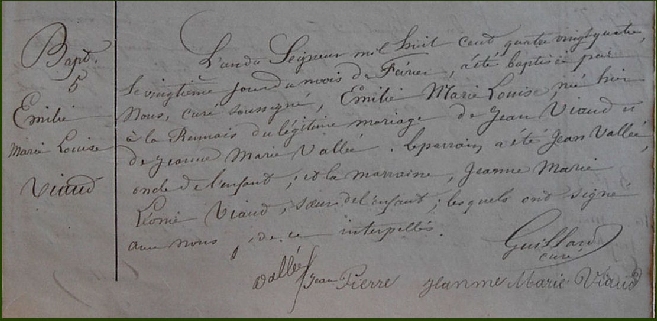 Bapt.
5
Emilie
Marie Louise
Viaud
L'an du Seigneur mil huit cent quatre vingt quatre,
le vingtième jour du mois de Février, a été baptisée par
Nous, curé soussigné, Emilie Marie Louise née hier
à la Remais du légitime mariage de Jean Viaud et
de Jeanne Marie Vallée. le parrain a été Jean Vallée,
oncle de l'enfant, et la marraine, Jeanne Marie
Léonie Viaud, sœur de l'enfant; lesquels ont signé
avec nous, de ce interpellés.
Guillard
curé
Vallée Jean Pierre Jeanne Marie Viaud